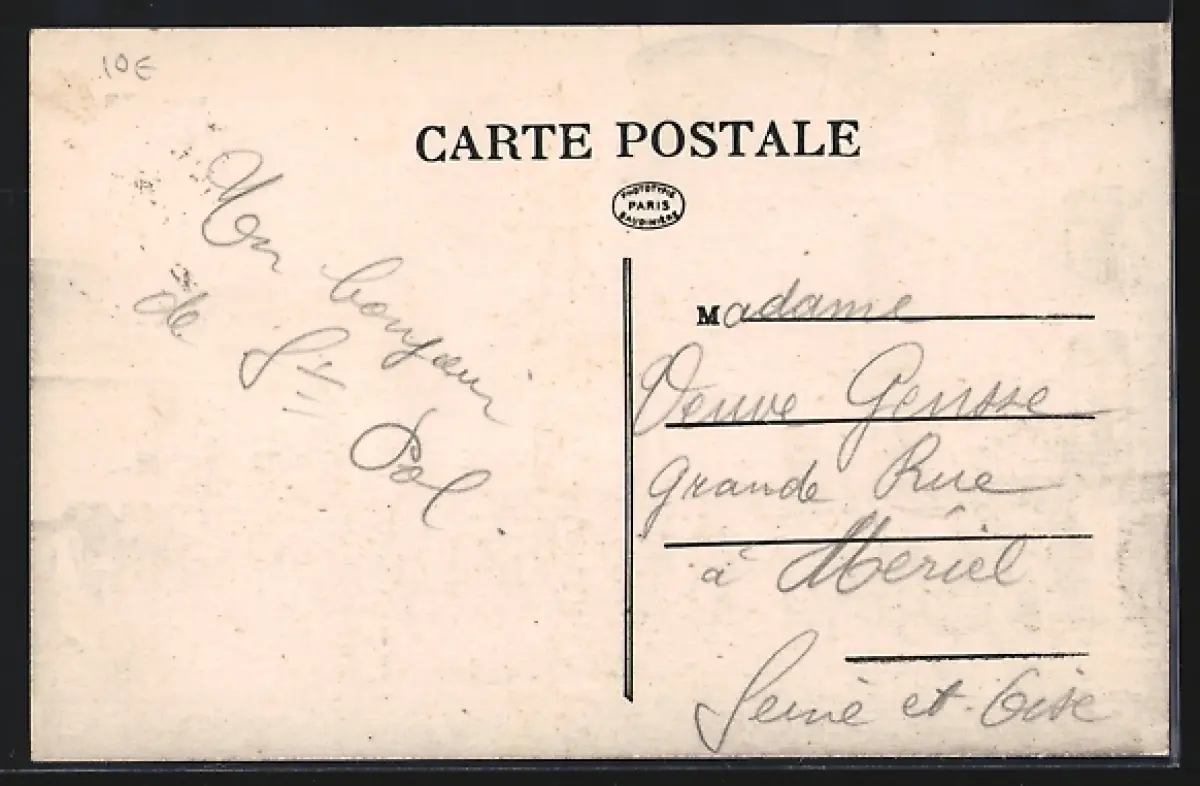 10€
CARTE POSTALE
PHOTOTYPIE
PARIS
BAUDINIÈRE
Un bonjour
de St Pol
Madame
Veuve Gensse
Grande Rue
à Mériel
Seine et Oise